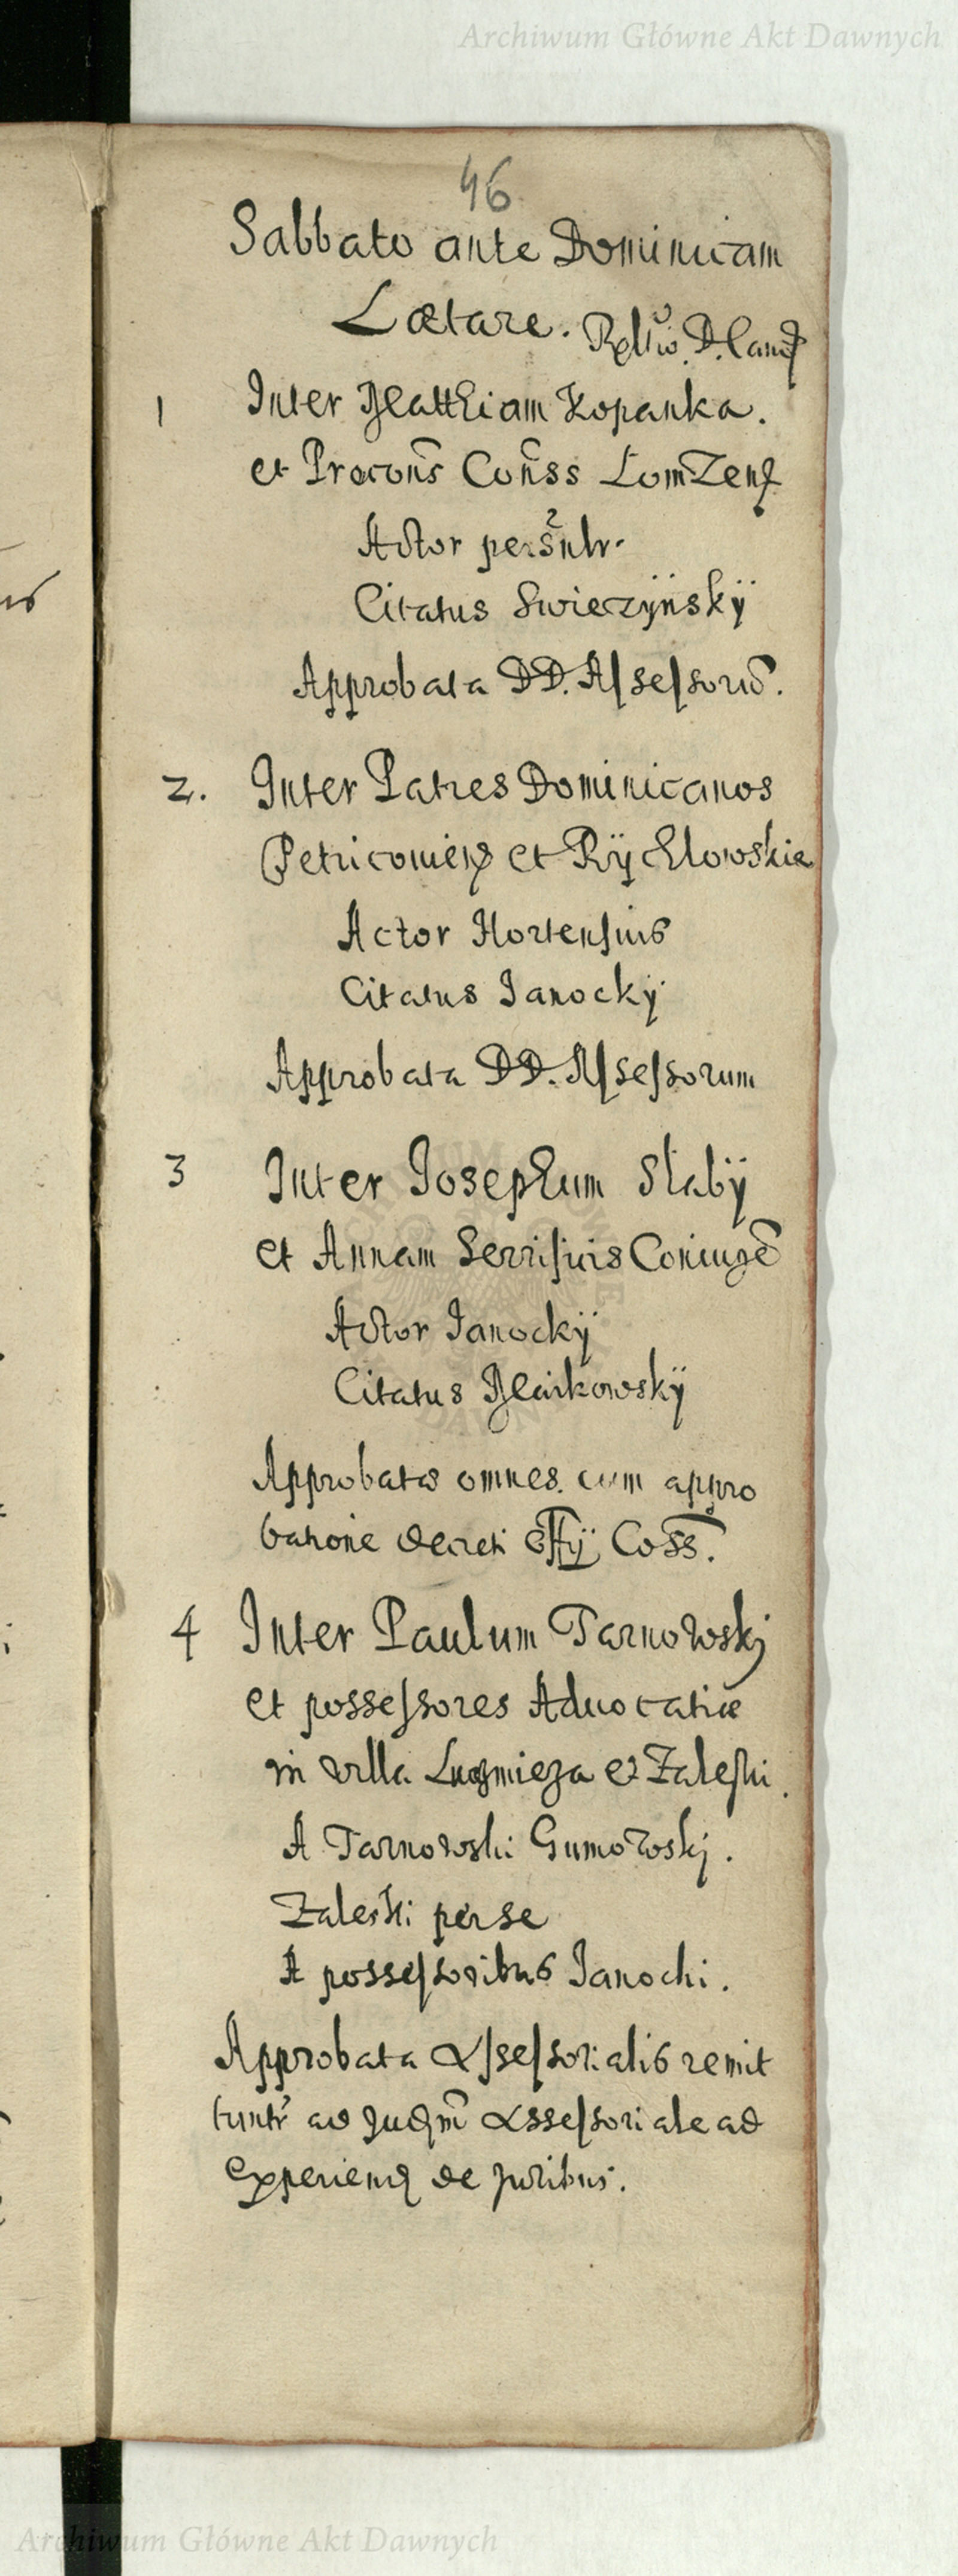 Archiwum Główne Akt Dawnych
46
Sabbato ante Dominicam
Lætare.
1 Inter Matthiam Kopanka.
et Procons Conss Lomzens
Actor
Citatus Swieczÿnskÿ
Approbata DD. Assessorū.
2. Inter Patres Dominicanos
Petricouien et Rÿchlowskie
Actor Hortensius
Citatus Janockÿ
Approbata DD. Assessorum
3 Inter Josephum Slabÿ
et Annam Coniugē
Actor Janockÿ
Citatus Maikowskÿ
Approbatæ omnes. cum appro
batione decreti Offÿ Coss.
4 Inter Paulum Tarnowskj
et possessores Aduocatiæ
in villa et Zaleski.
A Tarnowski Gumowskj.
Zaleski per se
A possessoribus Janocki.
Approbata Assessorialis remit
tuntr ad Judm Assessoriale ad
Experiend de juribus.
Archiwum Główne Akt Dawnych